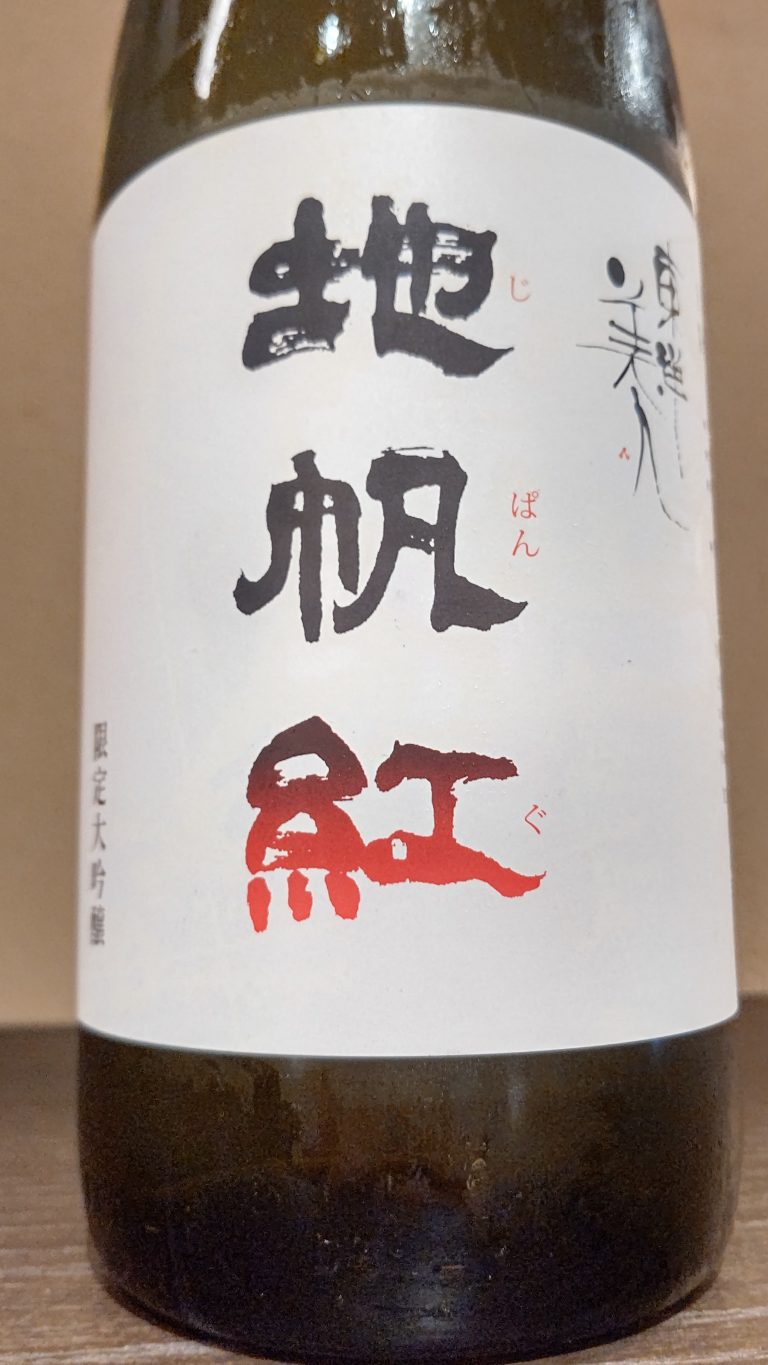 東洋
美人
地帆紅
じぱんぐ
限定大吟醸